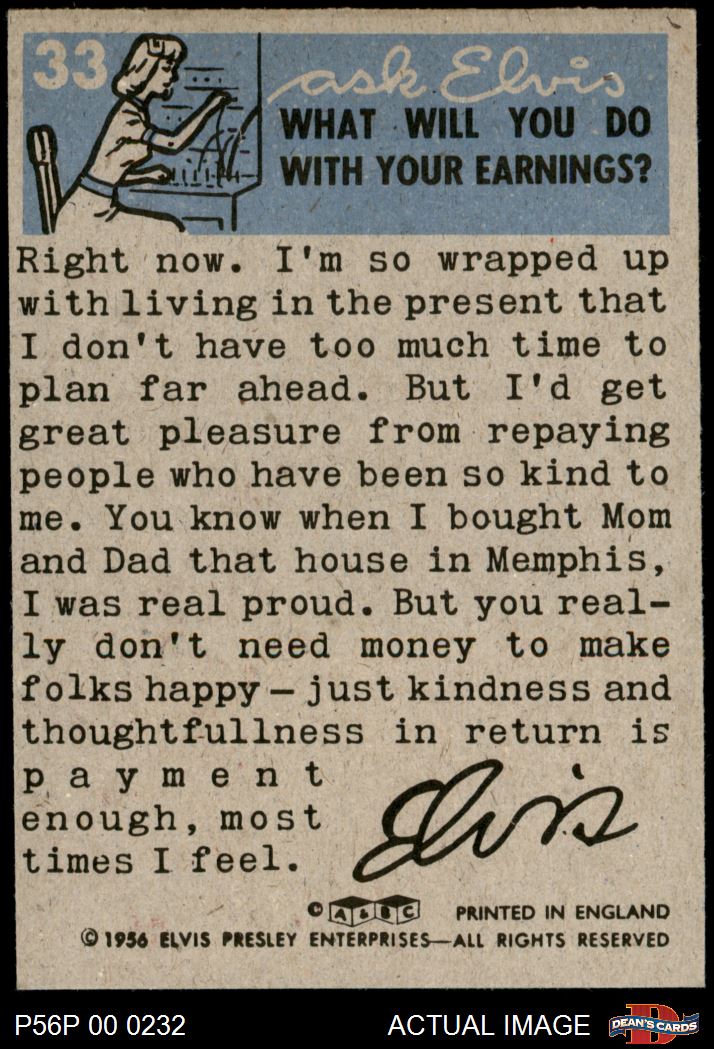 33
ask Elvis
WHAT WILL YOU DO
WITH YOUR EARNINGS?
Right now. I'm so wrapped up
with living in the present that
I don't have too much time to
plan far ahead. But I'd get
great pleasure from repaying
people who have been so kind to
me. You know when I bought Mom
and Dad that house in Memphis,
I was real proud. But you real-
ly don't need money to make
folks happy—just kindness and
thoughtfullness in return is
payment
enough, most
times I feel.
Elvis
© A & B C PRINTED IN ENGLAND
© 1956 ELVIS PRESLEY ENTERPRISES—ALL RIGHTS RESERVED
P56P 00 0232 ACTUAL IMAGE D DEAN'S CARDS